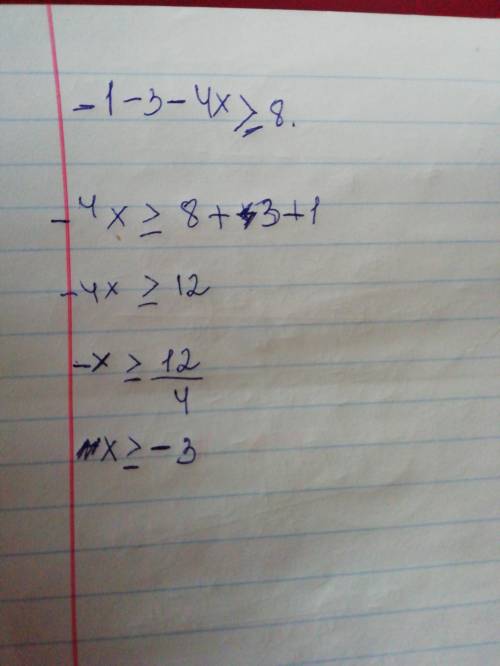 -1-3-4x≥8.
-4x ≥ 8+3+1
-4x ≥ 12
-x ≥ 12/4
x ≥ -3